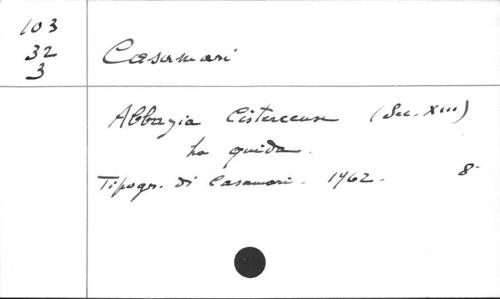 103
32
3
Casamari
Abbazia Cistercense (Sec. XIII)
guida.
Tipogr. di Casamari. 1962.
8°